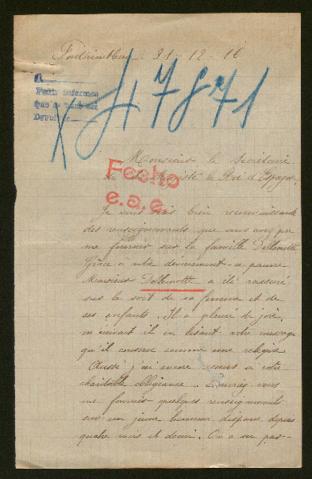 31-12-16
47871
Petit
Monsieur le Secrétaire
de Sa Majesté le Roi d'Espagne.
Fecho
e.a.e.
Je suis très bien reconnaissante
des renseignements que vous avez pu
me fournir sur la famille
Grâce à votre dévouement le pauvre
Monsieur a été rassuré
sur le sort de sa femme et de
ses enfants. Il a pleuré de joie,
m'écrivait-il en lisant votre message
qu'il conserve comme une relique
Aussi j'ai encore recours à votre
charitable obligeance. Pourriez-vous
me fournir quelques renseignements
sur un jeune homme disparu depuis
quatre mois et demi. On a su par-